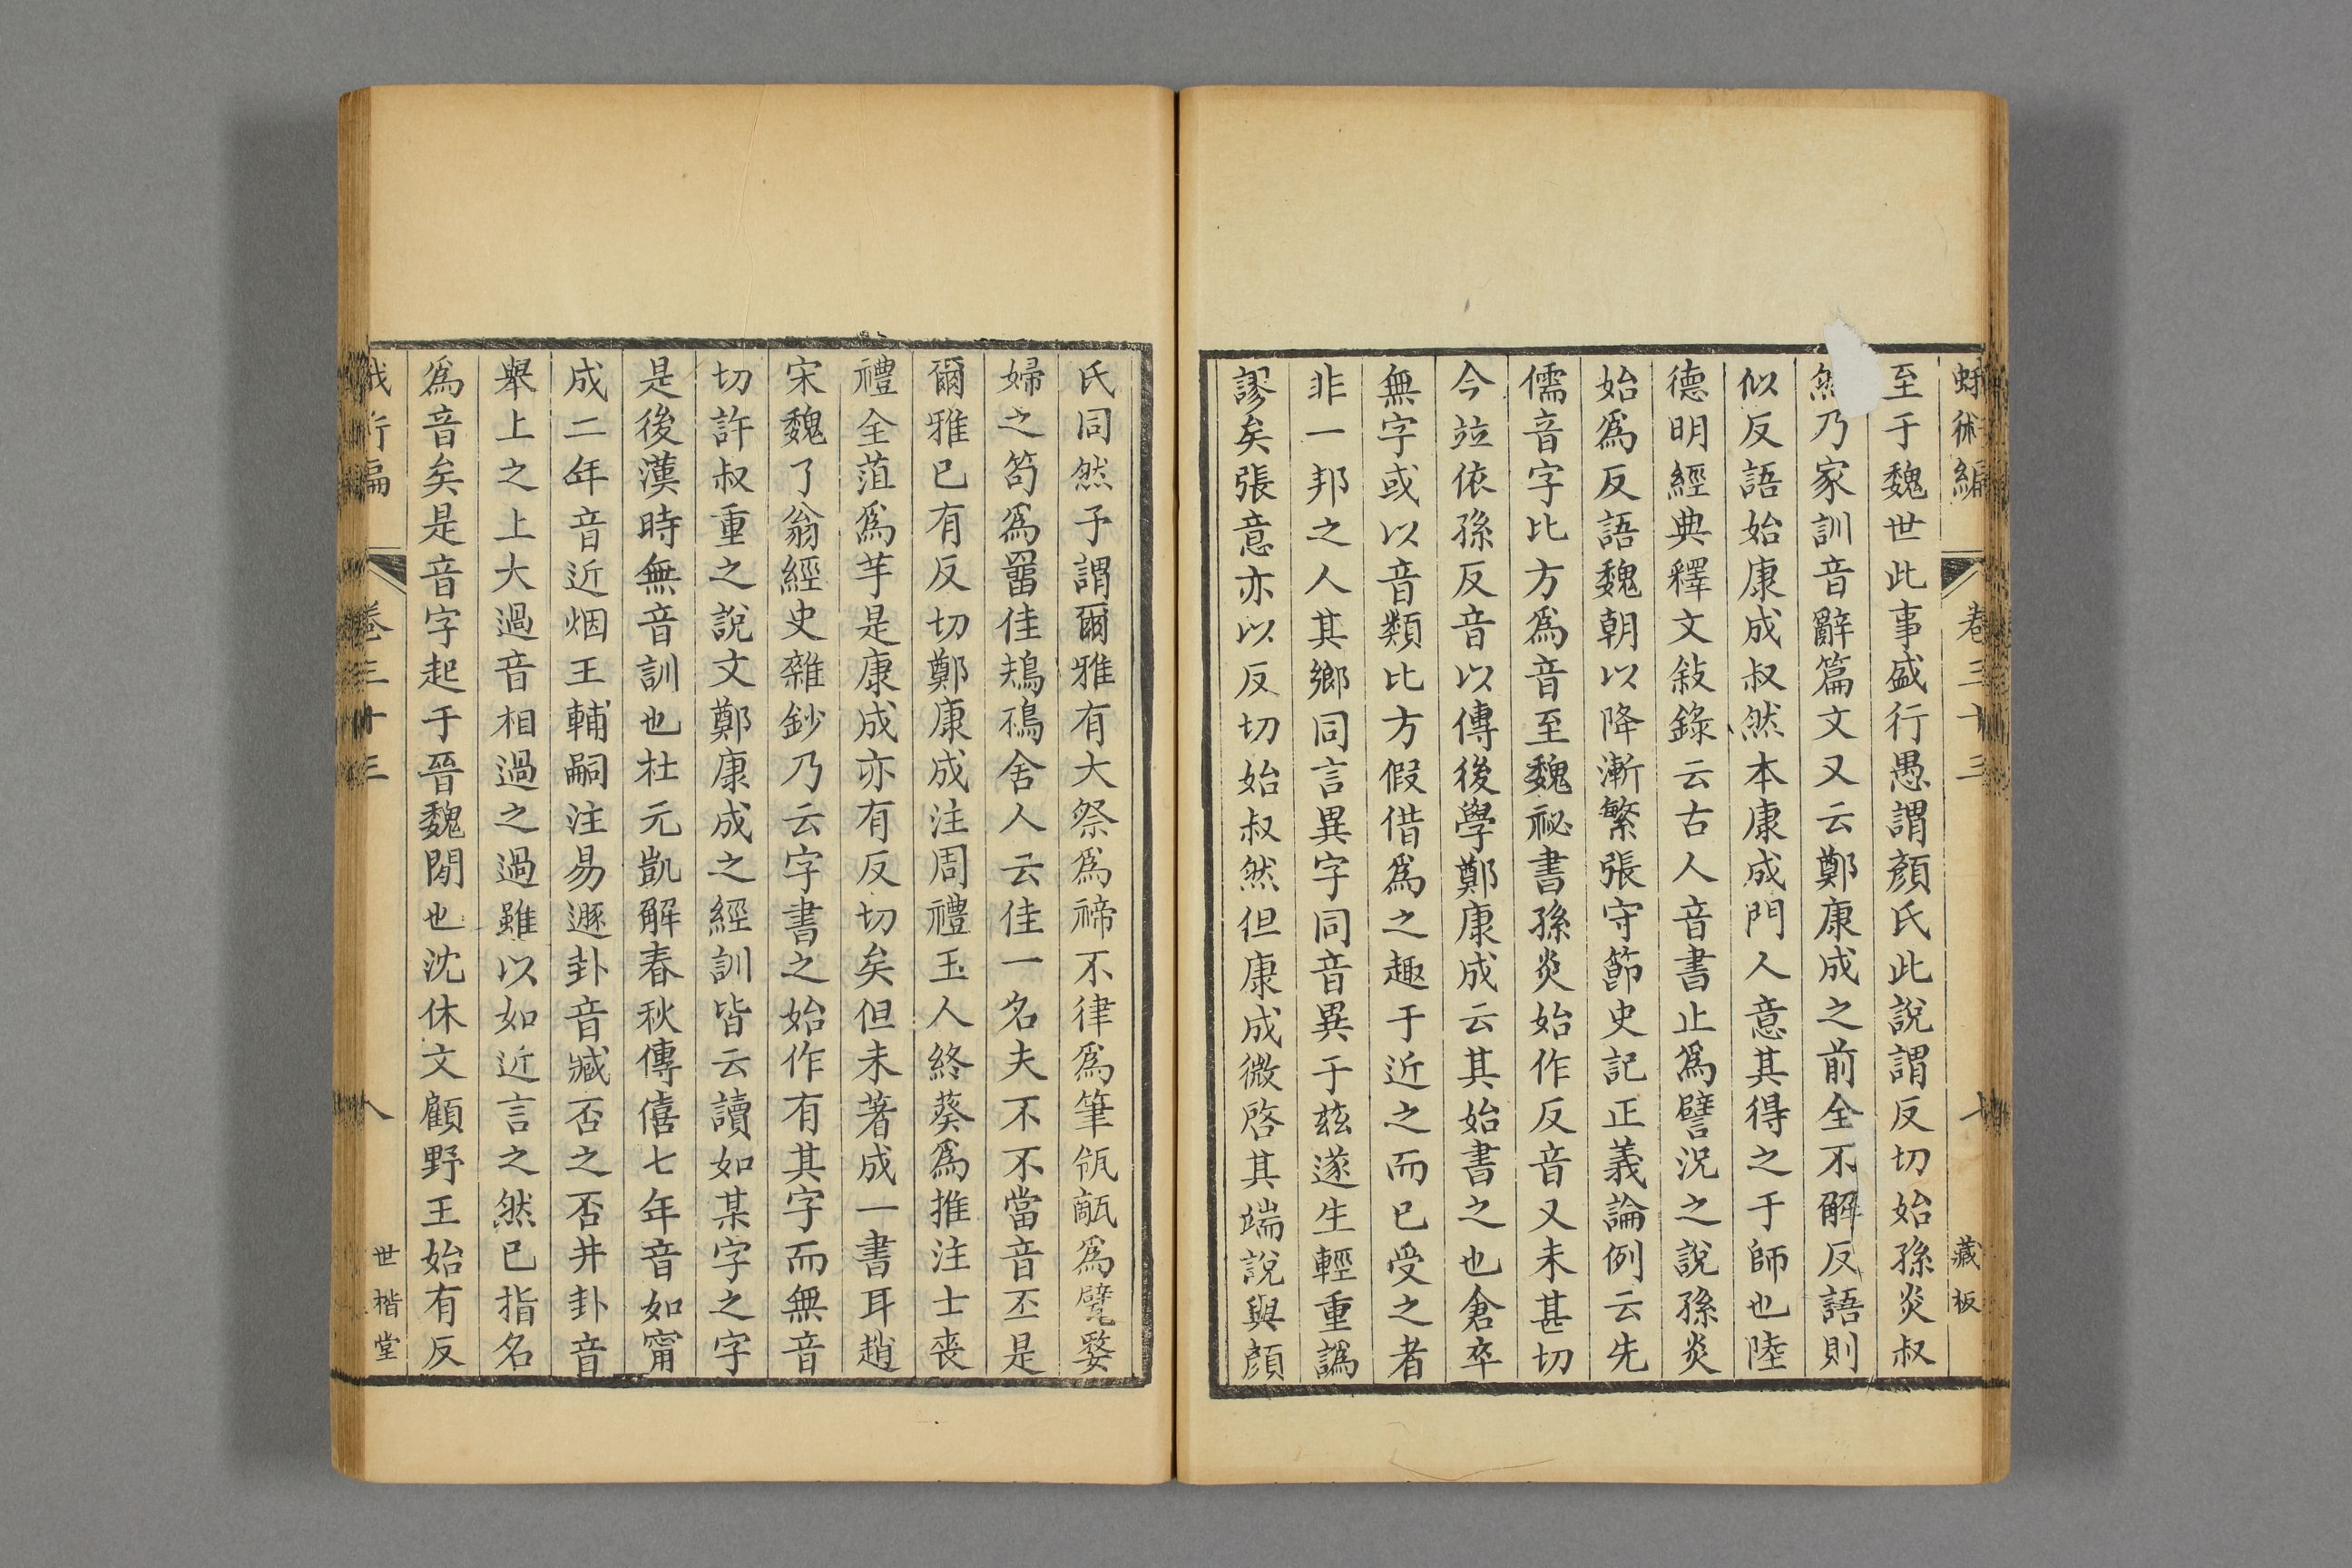 蛾術編 卷三十三 十 藏板
至于魏世此事盛行愚謂顏氏此說謂反切始孫炎叔
乃家訓音辭篇文又云鄭康成之前全不解反語則
似反語始康成叔然本康成門人意其得之于師也陸
德明經典釋文敍錄云古人音書止爲譬況之說孫炎
始爲反語魏朝以降漸繁張守節史記正義論例云先
儒音字比方爲音至魏祕書孫炎始作反音又未甚切
今竝依孫反音以傳後學鄭康成云其始書之也倉卒
無字或以音類比方假借爲之趣于近之而已受之者
非一邦之人其鄉同言異字同音異于兹遂生輕重譌
謬矣張意亦以反切始叔然但康成微啓其端說與顏
氏同然予謂爾雅有大祭爲禘不律爲筆瓴甋爲甓嫠
婦之笱爲罶隹鳺鴀舍人云隹一名夫不不當音丕是
爾雅已有反切鄭康成注周禮玉人終葵爲推注士喪
禮全菹爲芋是康成亦有反切矣但未著成一書耳趙
宋魏了翁經史雜鈔乃云字書之始作有其字而無音
切許叔重之說文鄭康成之經訓皆云讀如某字之字
是後漢時無音訓也杜元凱解春秋傳僖七年音如甯
成二年音近烟王輔嗣注易遯卦音臧否之否井卦音
舉上之上大過音相過之過雖以如近言之然已指名
爲音矣是音字起于晉魏閒也沈休文顧野王始有反
蛾術編 卷三十三 八 世楷堂